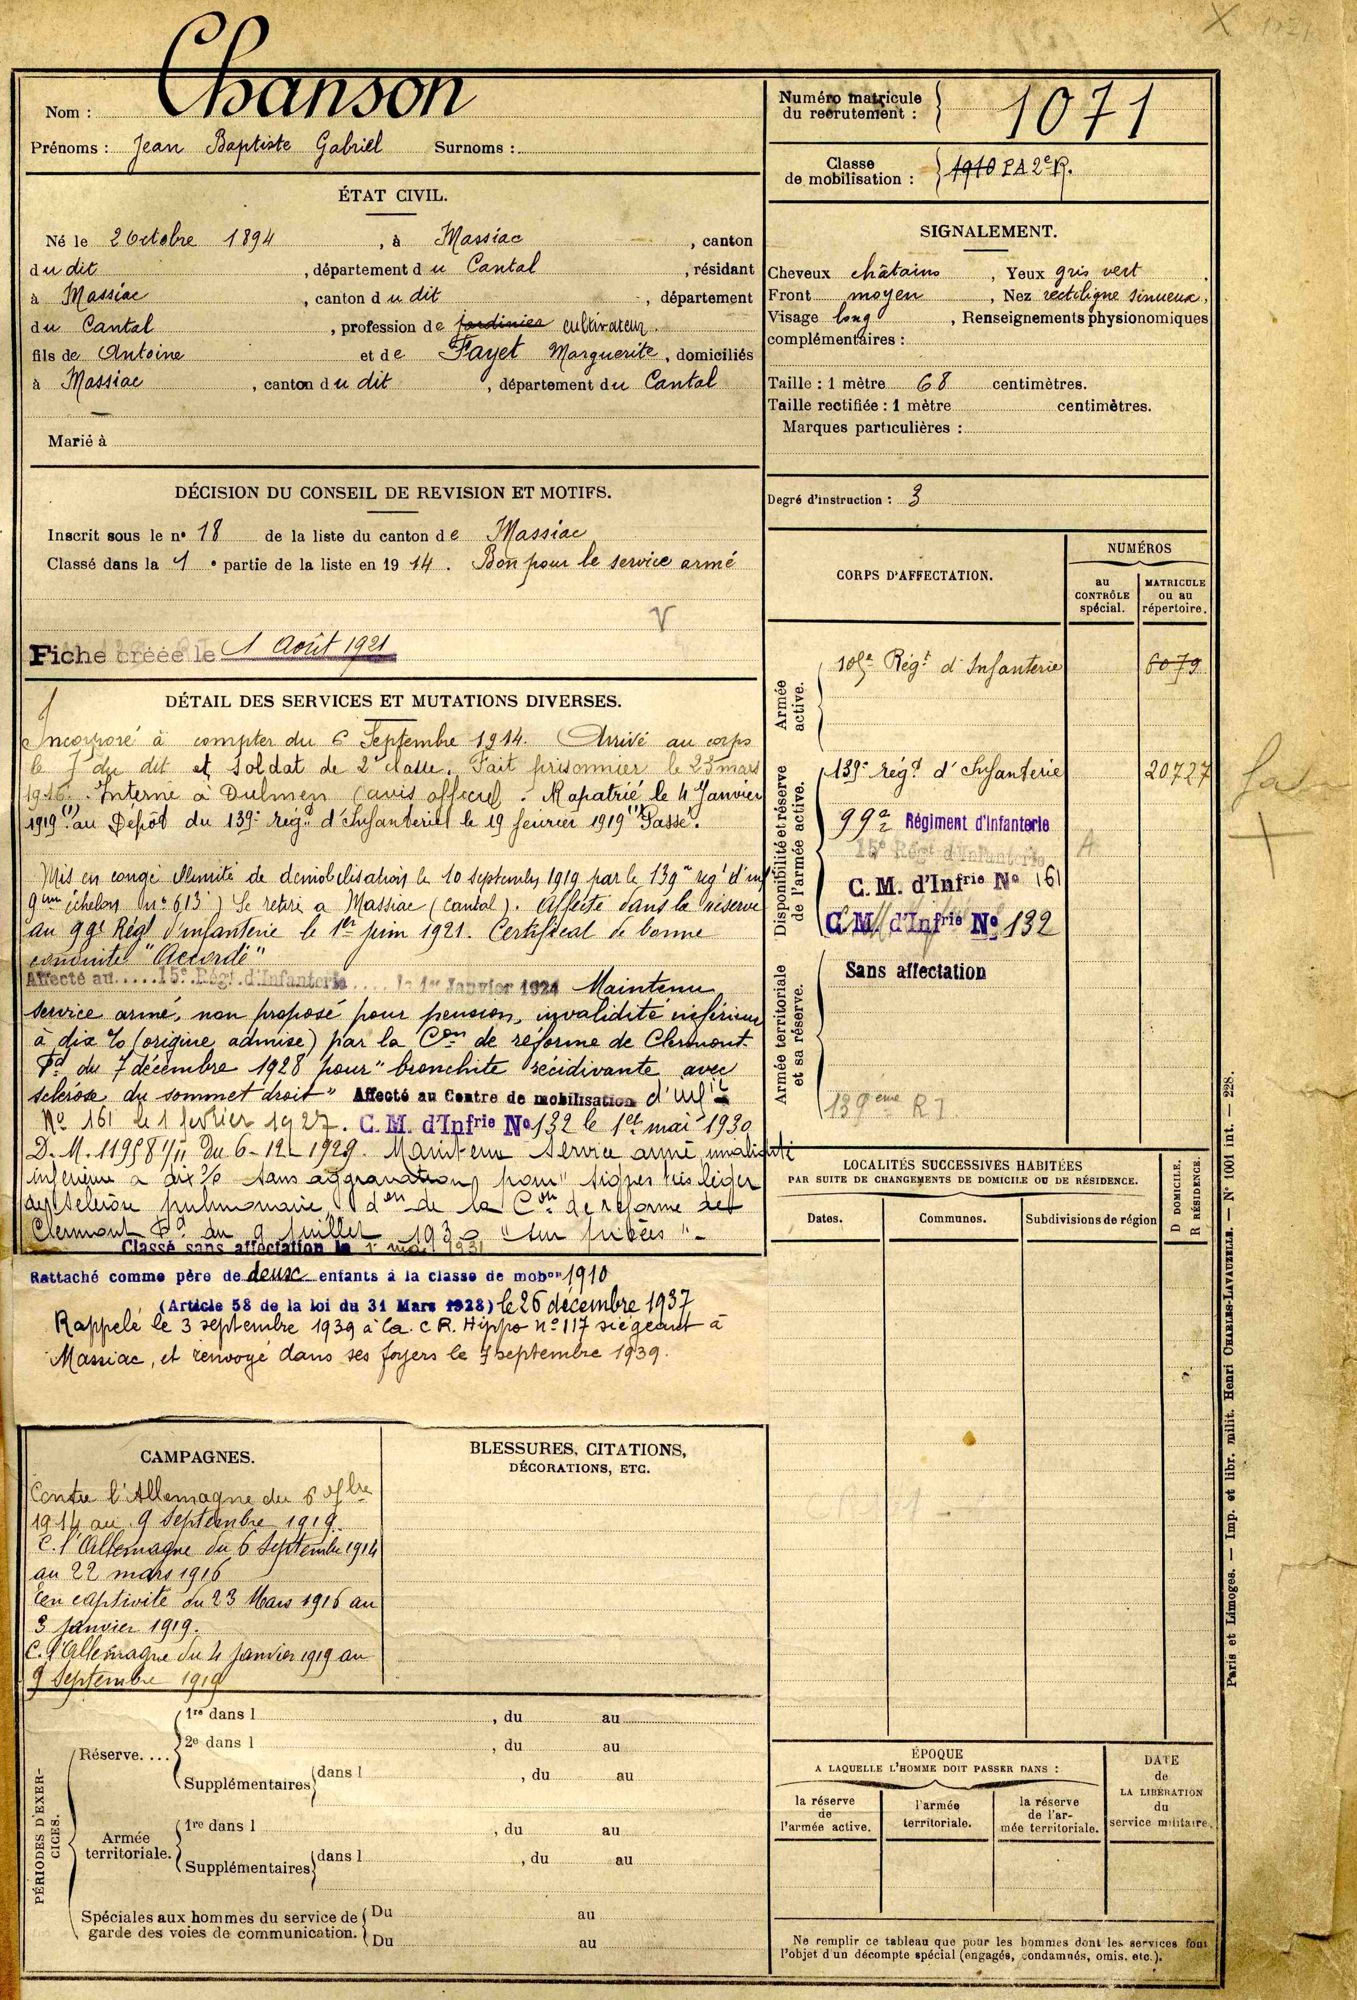 Nom : Chanson
Prénoms : Jean Baptiste Gabriel Surnoms :
ÉTAT CIVIL.
Né le 2 Octobre 1894, à Massiac, canton
du dit, département du Cantal, résidant
à Massiac, canton du dit, département
du Cantal, profession de jardinier cultivateur.
fils de Antoine et de Fayet Marguerite, domiciliés
à Massiac, canton du dit, département du Cantal
Marié à
DÉCISION DU CONSEIL DE REVISION ET MOTIFS.
Inscrit sous le n° 18 de la liste du canton de Massiac
Classé dans la 1e partie de la liste en 1914. Bon pour le service armé
V
Fiche créée le 1 Août 1921
DÉTAIL DES SERVICES ET MUTATIONS DIVERSES.
Incorporé à compter du 6 Septembre 1914. Arrivé au corps
le 7 du dit et soldat de 2e classe. Fait prisonnier le 23 mars
1916. Interné à Dulmen (avis officiel). Rapatrié le 4 Janvier
1919 au Dépôt du 139e régt d'Infanterie le 19 février 1919 Passé.
Mis en congé illimité de démobilisation le 10 septembre 1919 par le 139e rég' d'inf
9em échelon (n° 613) Se retire à Massiac (Cantal). Affecté dans la réserve
au 99e Régt d'infanterie le 1er juin 1921. Certificat de bonne
conduite "Accordé"
Affecté au 15e Régt. d'Infanterie le 1er Janvier 1924 Maintenu
service armé, non proposé pour pension, invalidité inférieure
à dix % (origine admise) par la Con de réforme de Clermont
Fd du 7 décembre 1928 pour "bronchite récidivante avec
sclérose du sommet droit" Affecté au Centre de mobilisation d'inftie
No 161 le 1 février 1927. C. M. d'Infrie No 132 le 1er mai 1930
D. M. 11958 1/11 du 6-12-1929. Maintenu service armé invalidité
inférieure à dix % sans aggravation pour "signes très légers
de sclérose pulmonaire don de la Con de réforme de
Clermont Fd du 9 juillet 1930 "sur pièces".
Classé sans affectation le 1 mai 1931
Rattaché comme père de deux enfants à la classe de mobon 1910
(Article 58 de la loi du 31 Mars 1928) le 26 décembre 1937
Rappelé le 3 septembre 1939 à la C R. Hippo n° 117 siégeant à
Massiac, et renvoyé dans ses foyers le 7 septembre 1939.
CAMPAGNES.
Contre l'Allemagne du 6 7bre
1914 au 9 Septembre 1919.
C. l'Allemagne du 6 Septembre 1914
au 22 mars 1916
En captivité du 23 Mars 1916 au
3 janvier 1919.
C. l'Allemagne du 4 janvier 1919 au
9 Septembre 1919
BLESSURES, CITATIONS,
DÉCORATIONS, ETC.
PÉRIODES D'EXER-
CICES.
Réserve....
1re dans l , du au
2e dans l , du au
Supplémentaires dans l , du au
Armée
territoriale.
1re dans l , du au
Supplémentaires dans l , du au
Spéciales aux hommes du service de
garde des voies de communication.
Du au
Du au
Numéro matricule
du recrutement : 1071
Classe
de mobilisation : 1910 PA 2e R.
SIGNALEMENT.
Cheveux châtains, Yeux gris vert
Front moyen, Nez rectiligne sinueux,
Visage long, Renseignements physionomiques
complémentaires :
Taille : 1 mètre 68 centimètres.
Taille rectifiée : 1 mètre centimètres.
Marques particulières :
Degré d'instruction : 3
CORPS D'AFFECTATION.
NUMÉROS
au
CONTRÔLE
spécial.
MATRICULE
ou au
répertoire.
Armée
active.
105e Régt d'Infanterie 6079
Disponibilité et réserve
de l'armée active.
139e régt d'Infanterie 20727
99e Régiment d'Infanterie
15e Régt d'Infanterie A
C. M. d'Infrie No 161
C. M. d'Infrie No 132
Armée territoriale
et sa réserve.
Sans affectation
139ème R I
LOCALITÉS SUCCESSIVES HABITÉES
PAR SUITE DE CHANGEMENTS DE DOMICILE OU DE RÉSIDENCE.
Dates.
Communes.
Subdivisions de région
D DOMICILE.
R RÉSIDENCE.
ÉPOQUE
A LAQUELLE L'HOMME DOIT PASSER DANS :
la réserve
de
l'armée active.
l'armée
territoriale.
la réserve
de l'ar-
mée territoriale.
DATE
de
LA LIBÉRATION
du
service militaire.
Ne remplir ce tableau que pour les hommes dont les services font
l'objet d'un décompte spécial (engagés, condamnés, omis, etc.).
Paris et Limoges. — Imp. et libr. milit. Henri CHARLES-LAVAUZELLE. — N° 1001 int. — 228.